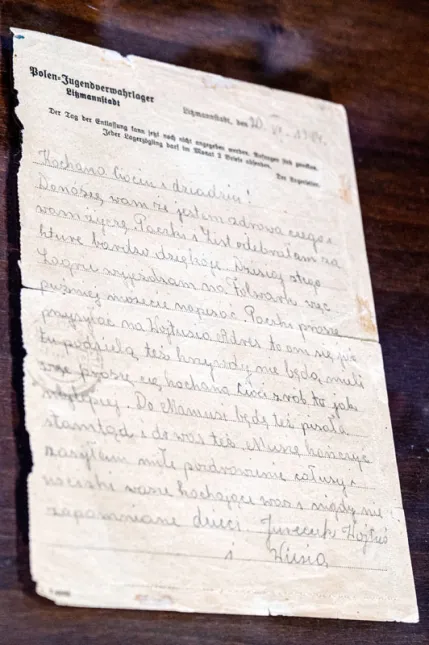 Polen-Jugendverwahrlager
Litzmannstadt
Litzmannstadt, den 20 VI. 1944.
Der Tag der Entlassung kann jetzt noch nicht angegeben werden. Anfragen sind zwecklos.
Jeder Lagerzögling darf im Monat 2 Briefe absenden.
Der Lagerleiter.
Kochana Ciociu i dziadziu!
Donoszę wam że jestem zdrowa czego i
wam życzę Paczki i List odebrałam za
które bardzo dziękuję. Dzisiaj
wyjeżdżam na Folwark więc
puzniej możecie napisać. Paczki proszę
przysyłać na Wojtusia Adres to oni się już
tu podzielą też krzywdy nie będą mieli
więc proszę cię kochana Cioci zrób to jak
najlepiej. Do Mamusi będę też pisała
stamtąd i do was też. Muszę kończyć
zasyłam miłe pozdrowienie całusy i
uściski wasze kochające was i nigdy nie
zapomniane dzieci Jureczek Wojtuś
i Wiesia